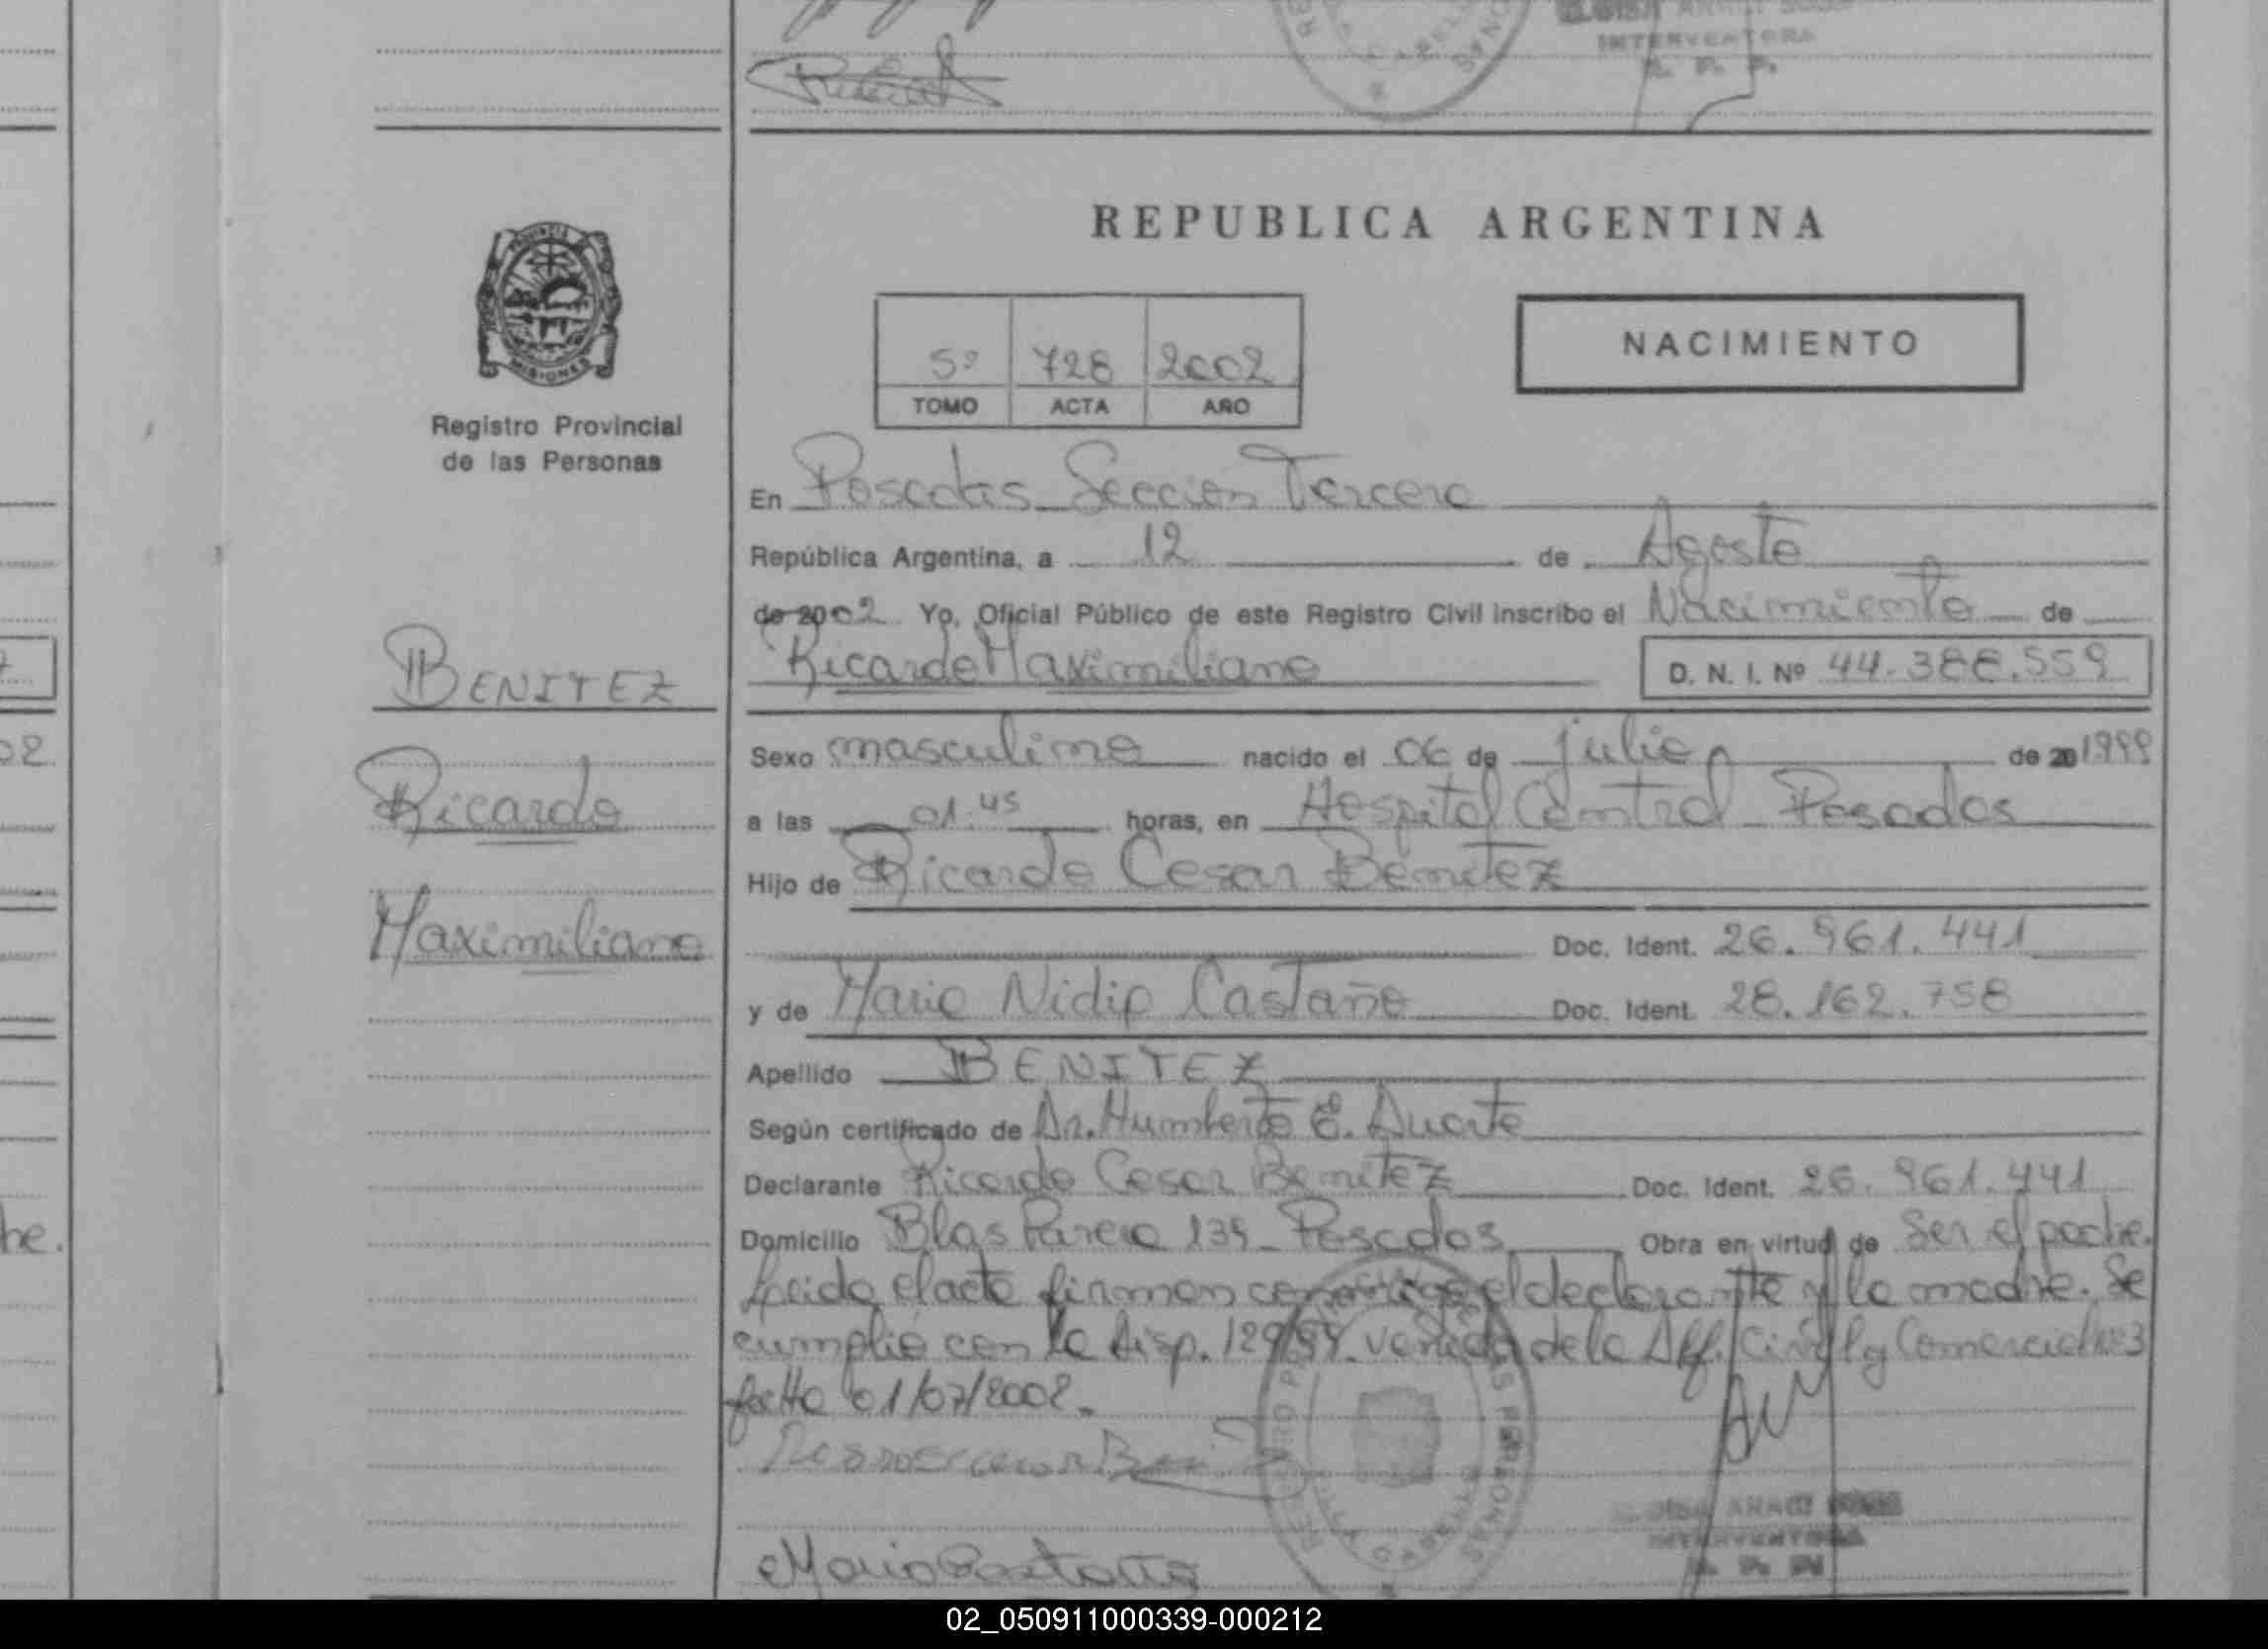 INTERVENTORA
REPUBLICA ARGENTINA
PROVINCIA DE
MISIONES
Registro Provincial
de las Personas
5º 728 2002
TOMO ACTA AÑO
NACIMIENTO
En Posadas Sección Tercera
República Argentina, a 12 de Agosto
de 2002 Yo, Oficial Público de este Registro Civil inscribo el Nacimiento de
Ricardo Maximiliano
D. N. I. Nº 44.388.559
BENITEZ
Ricardo
Maximiliano
Sexo masculino nacido el 06 de julio de 20 1999
a las 01.45 horas, en Hospital Central Posadas
Hijo de Ricardo Cesar Benitez
Doc. Ident. 26.961.441
y de Maria Nidia Castaño Doc. Ident. 28.162.758
Apellido BENITEZ
Según certificado de Dr. Humberto E. Duarte
Declarante Ricardo Cesar Benitez Doc. Ident. 26.961.441
Domicilio Blas Parera 135 - Posadas Obra en virtud de ser el padre.
Leida el acta firman conmigo el declarante y la madre. Se
cumplió con la Disp. 129/99. venida de la Def. Civil y Comercial Nº3
fecha 01/07/2002.
Maria Castaño
INTERVENTORA
02_050911000339-000212